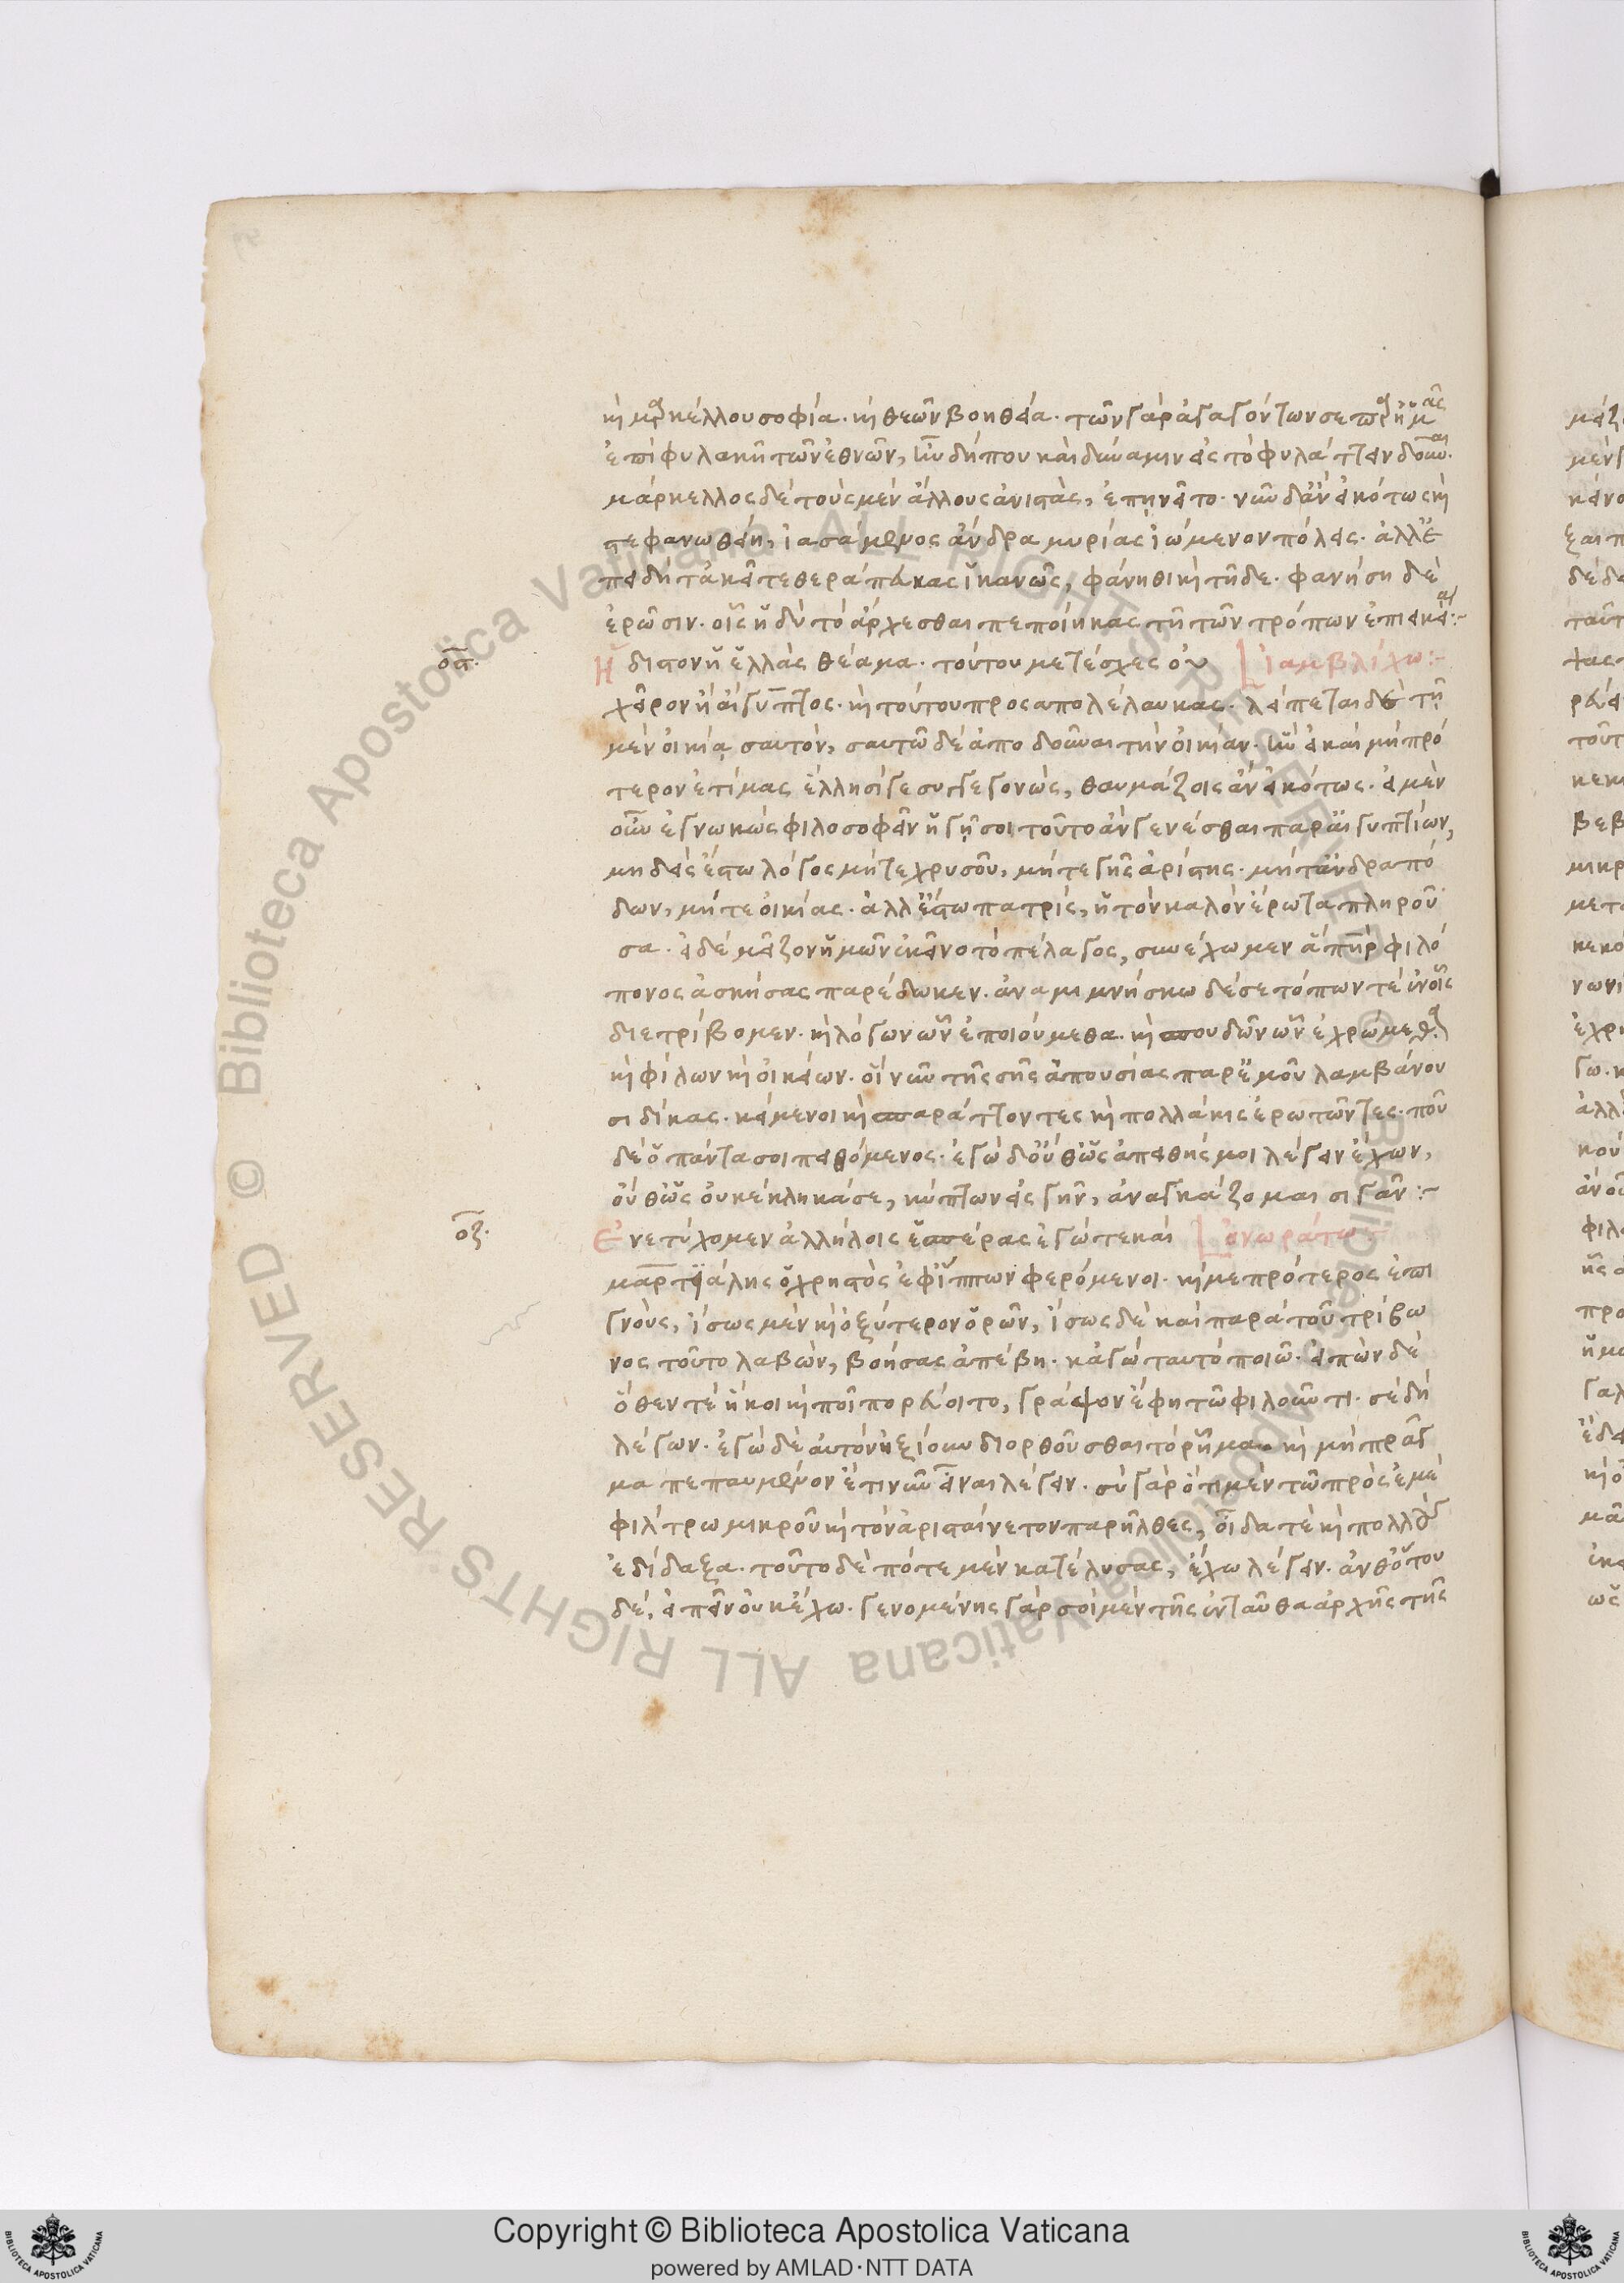 καὶ μαρκέλλου σοφία. καὶ θεῶν βοηθεία. τῶν γὰρ ἀγαγόντων σε παρ' ἡμᾶς
ἐπὶ φυλακῇ τῶν ἐθνῶν, ἦν δήπου καὶ δύναμιν εἰς τὸ φυλάττειν δοῦναι.
μάρκελλος δὲ τοὺς μὲν ἄλλους ἀνιστὰς, ἐπῃνεῖτο. νῦν δ' ἂν εἰκότως καὶ
στεφανωθείη, ἰασάμενος ἄνδρα μυρίας ἰώμενον πόλεις. ἀλλ' ἐ
πειδὴ τἀκεῖ τεθεράπευκας ἱκανῶς, φάνηθι καὶ τῇδε. φανήσῃ δὲ
ἐρῶσιν. οἷς ἡδὺ τὸ ἄρχεσθαι πεποίηκας τῇ τῶν τρόπων ἐπιεικείαι:~
ος. Ἥδιστον ἡ ἑλλὰς θέαμα. τούτου μετέσχες οὐ ἰαμβλίχω:~
χεῖρον ἡ αἴγυπτος. καὶ τούτου προσαπολέλαυκας. λείπεται δὲ τῇ
μὲν οἰκίᾳ σαυτὸν, σαυτῷ δὲ ἀποδοῦναι τὴν οἰκίαν. ἣν εἰ καὶ μὴ πρό
τερον ἐτίμας ἕλλησί γε συγγεγονὼς, θαυμάζοις ἂν εἰκότως. εἰ μὲν
οὖν ἐγνωκὼς φιλοσοφεῖν ἡγῇ σοι τοῦτο ἂν γενέσθαι παρ' αἰγυπτίων,
μηδεὶς ἔστω λόγος μήτε χρυσοῦ, μήτε γῆς ἀρίστης. μήτ' ἀνδραπό
δων, μήτε οἰκίας. ἀλλ' ἔστω πατρὶς, ἡ τὸν καλὸν ἔρωτα πληροῦ
σα. εἰ δὲ μεῖζον ἡμῶν ἐκεῖνο τὸ πέλαγος, συνέχωμεν ἅπερ φιλό
πονος ἀσκήσας παρέδωκεν. ἀναμιμνήσκω δέ σε τόπων τὲ ἐν οἷς
διετρίβομεν. καὶ λόγων ὧν ἐποιούμεθα. καὶ σπουδῶν ὧν ἐχρώμεθα.
καὶ φίλων καὶ οἰκείων. οἳ νῦν τῆς σῆς ἀπουσίας παρ' ἐμοῦ λαμβάνου
σι δίκας. κείμενοι καὶ σπαράττοντες καὶ πολλάκις ἐρωτῶντες. ποῦ
δὲ ὁ πάντα σοι πειθόμενος. ἐγὼ δ' οὔθ' ὡς ἀπειθής μοι λέγειν ἔχων,
οὔθ' ὡς οὐ κέκληκά σε, κύπτων εἰς γῆν, ἀναγκάζομαι σιγᾶν:~
οζ. Ἐνετύχομεν ἀλλήλοις ἑσπέρας ἐγώ τε καὶ ὁνωράτω
μαρτιάλης ὁ χρηστὸς ἐφ' ἵππων φερόμενοι. καί με πρότερος ἐπι
γνοὺς, ἴσως μὲν καὶ ὀξύτερον ὁρῶν, ἴσως δὲ καὶ παρὰ τοῦ τρίβω
νος τοῦτο λαβὼν, βοήσας ἀπέβη. κἀγὼ ταυτὸ ποιῶ. εἰπὼν δὲ
ὅθεν τὲ ἥκοι καὶ ποῖ πορεύοιτο, γράψον ἔφη τῷ φιλοῦντι. σὲ δὴ
λέγων. ἐγὼ δὲ αὐτὸν ἠξίουν διορθοῦσθαι τὸ ῥῆμα. καὶ μὴ πρᾶγ
μα πεπαυμένον ἔτι νῦν εἶναι λέγειν. σὺ γὰρ ὅτι μὲν τῷ πρὸς ἐμὲ
φίλτρω μικροῦ καὶ τὸν ἀρισταίνετον παρῆλθες, οἶδά τε καὶ πολλοὺς
ἐδίδαξα. τοῦτο δὲ πότε μὲν κατέλυσας, ἔχω λέγειν. ἀνθ' ὅτου
δὲ, εἰπεῖν οὐκ ἔχω. γενομένης γὰρ σοὶ μὲν τῆς ἐνταῦθα ἀρχῆς τῆς
Copyright © Biblioteca Apostolica Vaticana
powered by AMLAD·NTT DATA